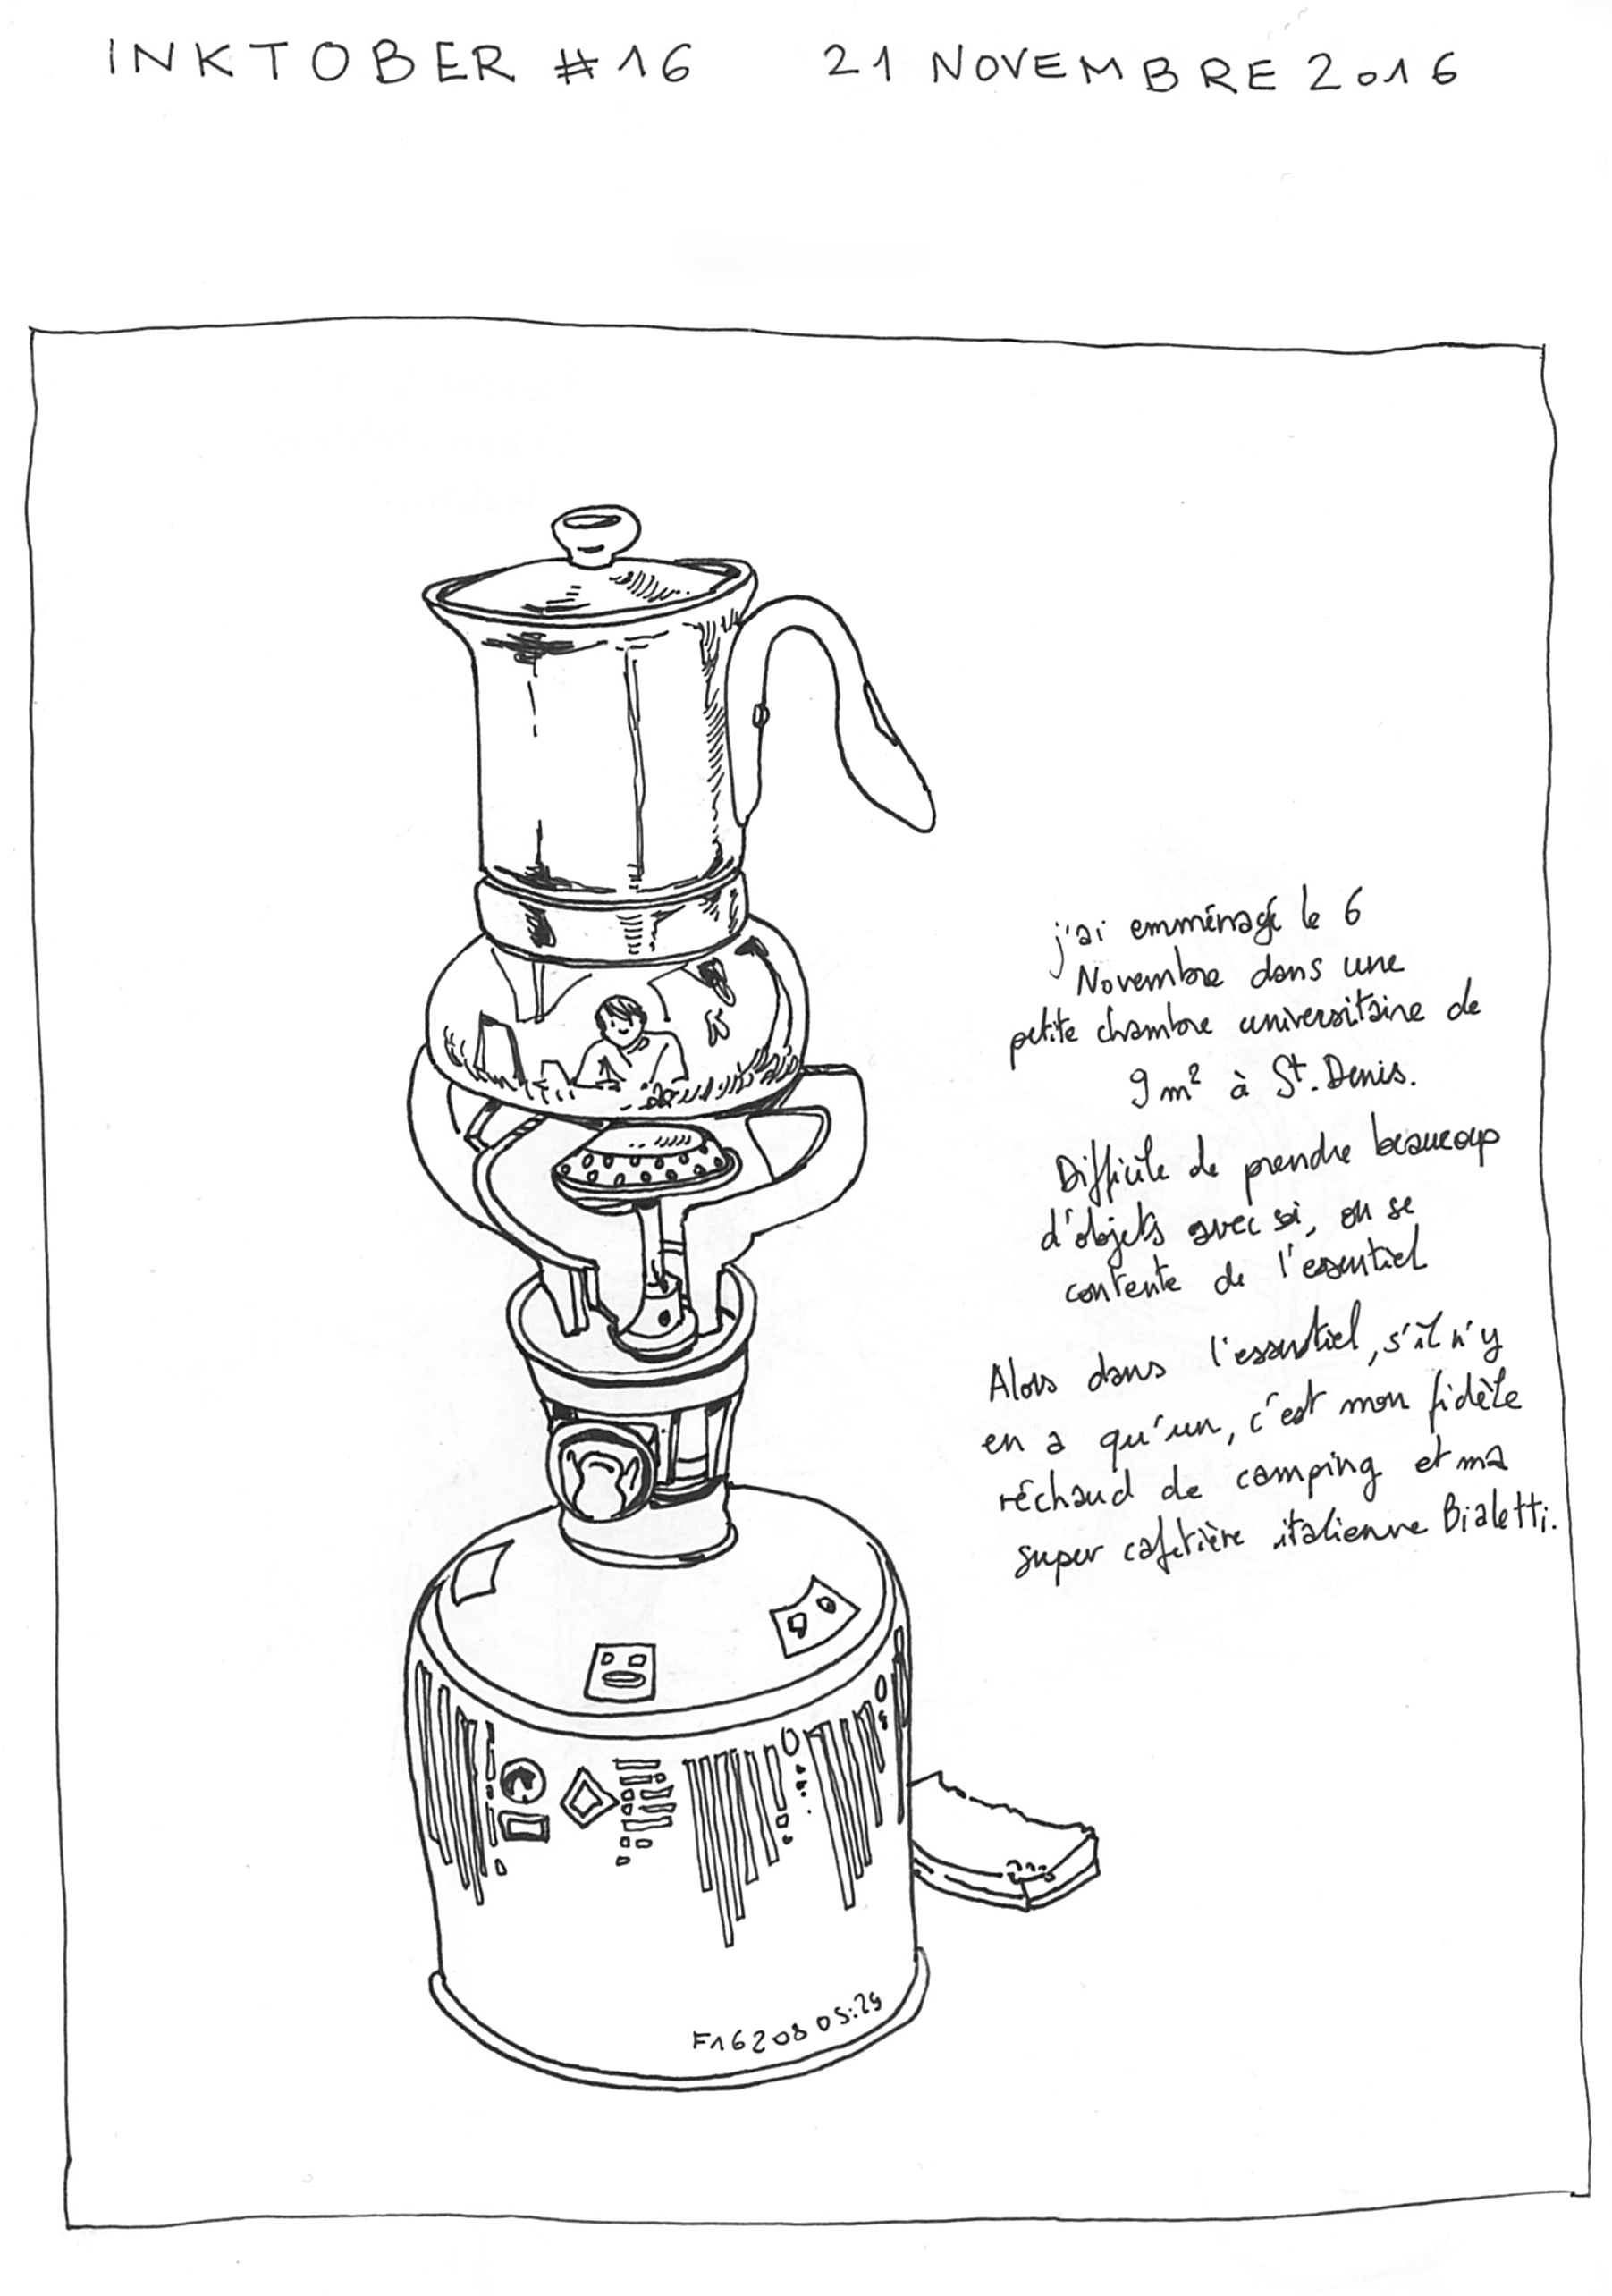 INKTOBER #16 21 NOVEMBRE 2016
j'ai emménagé le 6
Novembre dans une
petite chambre universitaire de
9 m² à St. Denis.
Difficile de prendre beaucoup
d'objets avec soi, on se
contente de l'essentiel
Alors dans l'essentiel, s'il n'y
en a qu'un, c'est mon fidèle
réchaud de camping et ma
super cafetière italienne Bialetti.
F16208 05:29